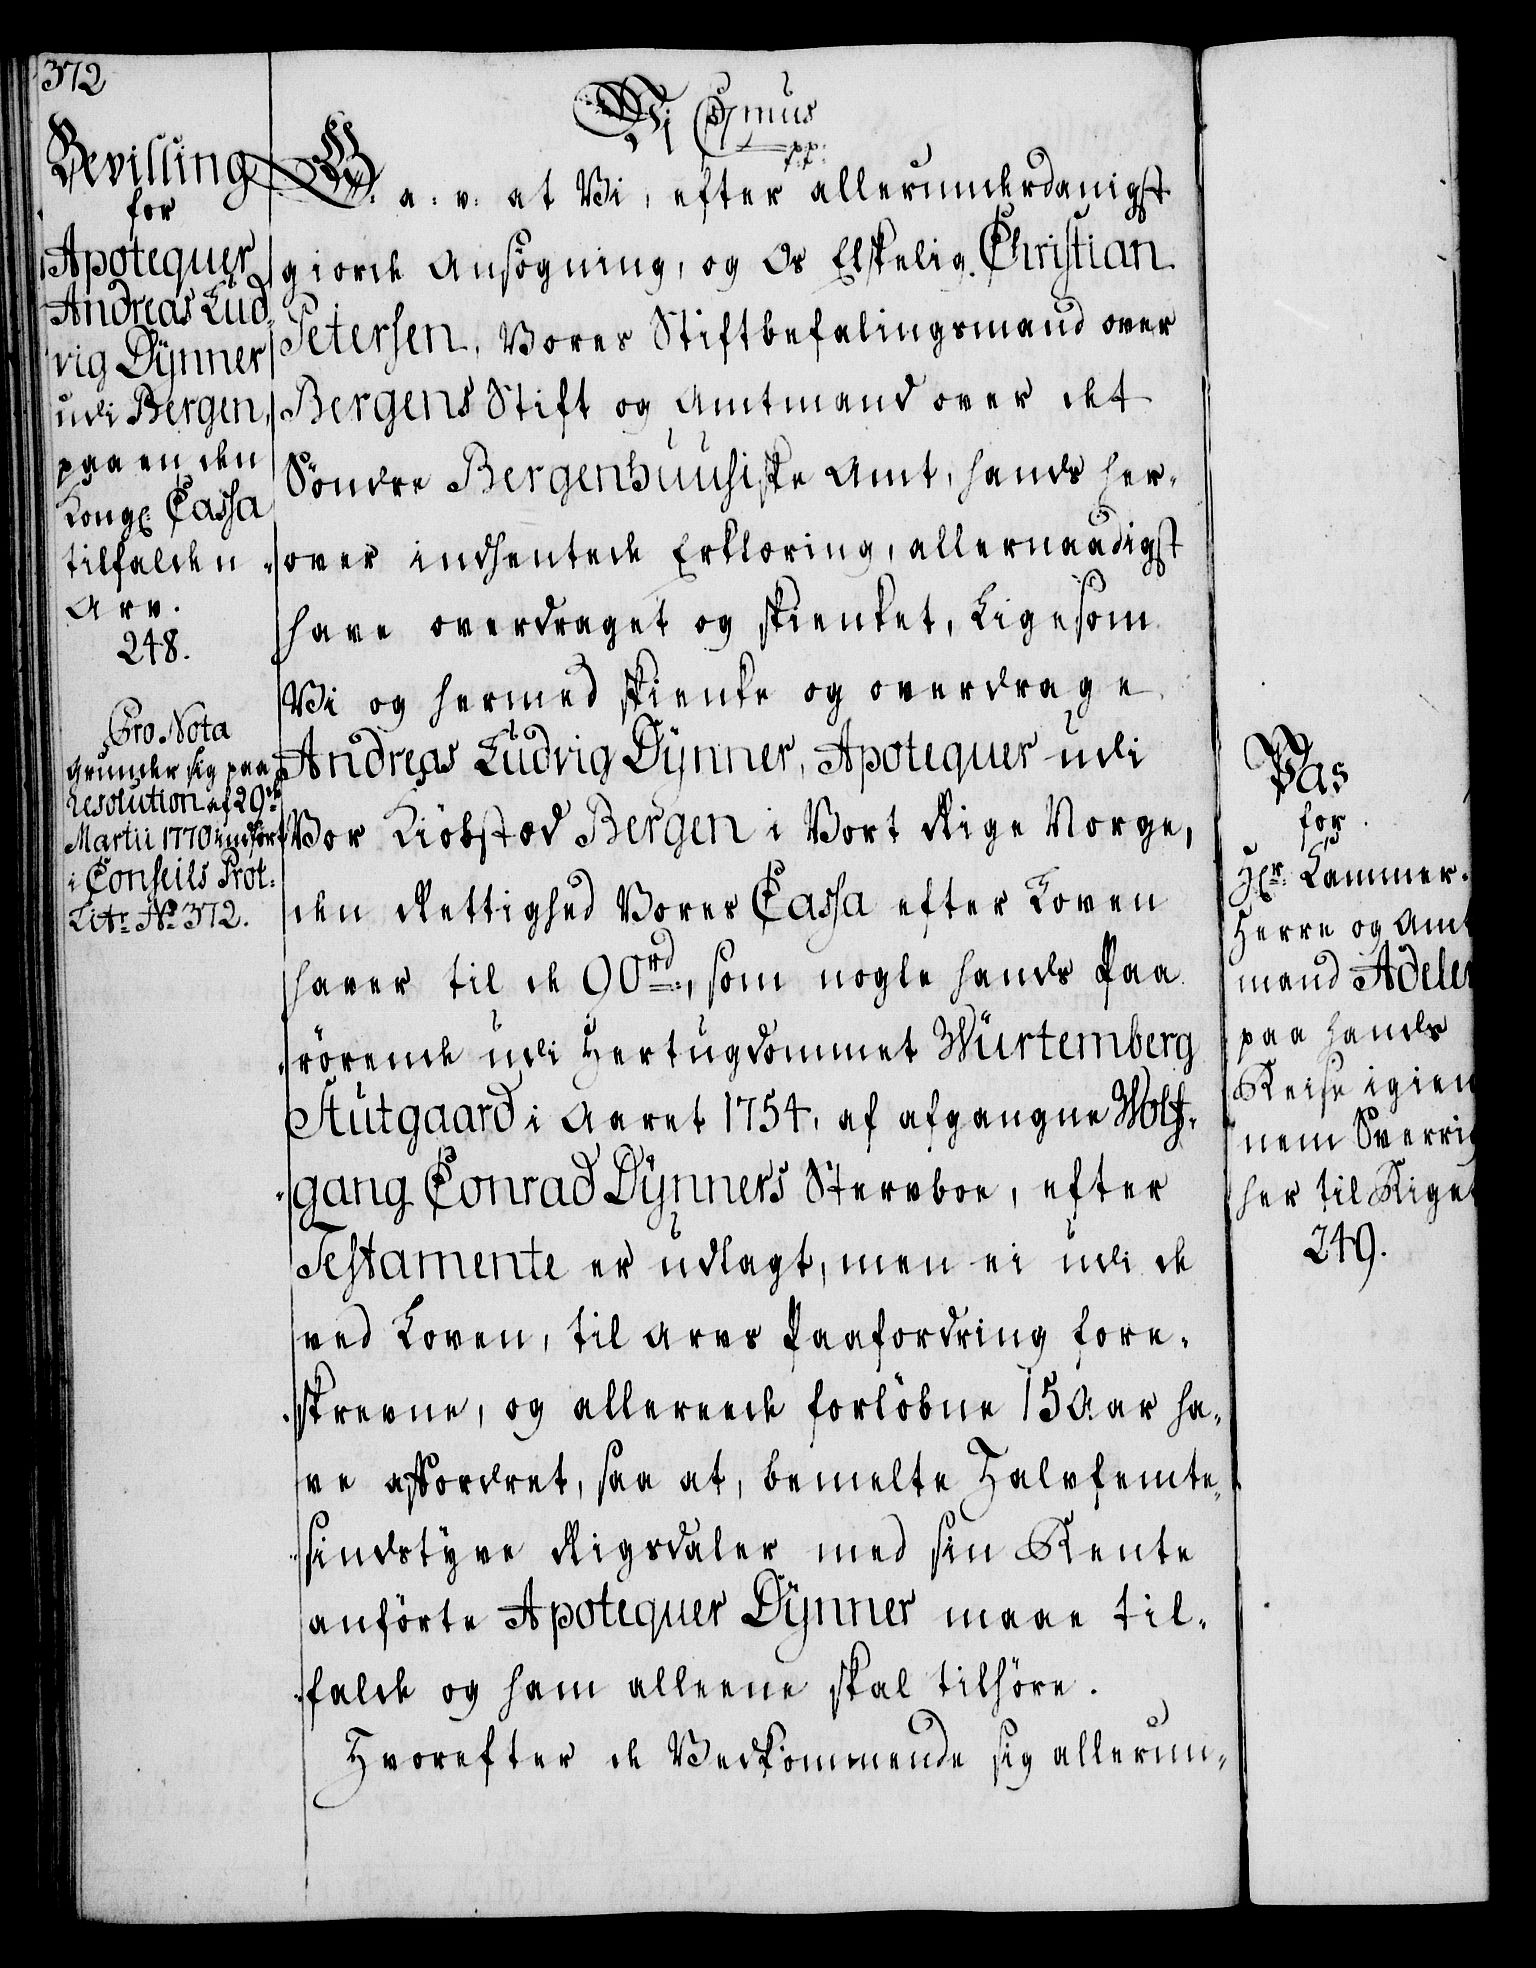 372
Bevilling
for
Apotequer
Andreas Lud
vig Dÿnner
udi Bergen,
paa en den
Kongl: Cassa
tilfalden
Arv.
248.
Pro Nota
grunder sig paa
Resolution af 29de
Martii 1770 indført
i Conseils Prot:
Litr: No 372.
Vi C 7mus
pp:
G. a. v. at Vi, efter allerunderdanigst
giorde Ansögning, og Os Elskelig Christian
Petersen, Vores Stiftbefalingsmand over
Bergens Stift og Amtmand over det
Söndre Bergenhuusiske Amt, hands her-
over indhentede Erklæring, allernaadigst
have overdraget og skienket, Ligesom
Vi og hermed skienke og overdrage
Andreas Ludvig Dÿnner, Apotequer udi
Vor Kiöbstæd Bergen i Vort Rige Norge,
den Rettighed Vores Cassa efter Loven
haver til de 90rd:, som nogle hands Paa
rörende udi Hertugdommet Würtemberg
Stutgaard i Aaret 1754, af afgangne Wolf-
gang Conrad Dÿnners Stervboe, efter
Testamente er udlagt, men ei udi de
ved Loven, til Arvs Paafordring fore-
skrevne, og allereede forlöbne 15 Aar ha-
ve affordret, saa at, bemelte Halvfemte-
sindstÿve Rigsdaler med sin Rente
anförte Apotequer Dÿnner maae til-
falde og ham alleene skal tilhöre.
Hvorefter de Vedkommende sig allerun-
Pas
for
Hr: Kammer-
Herre og Amt
mand Adeler
paa hands
Reise igien
nem Sverrig
her til Riget
249.